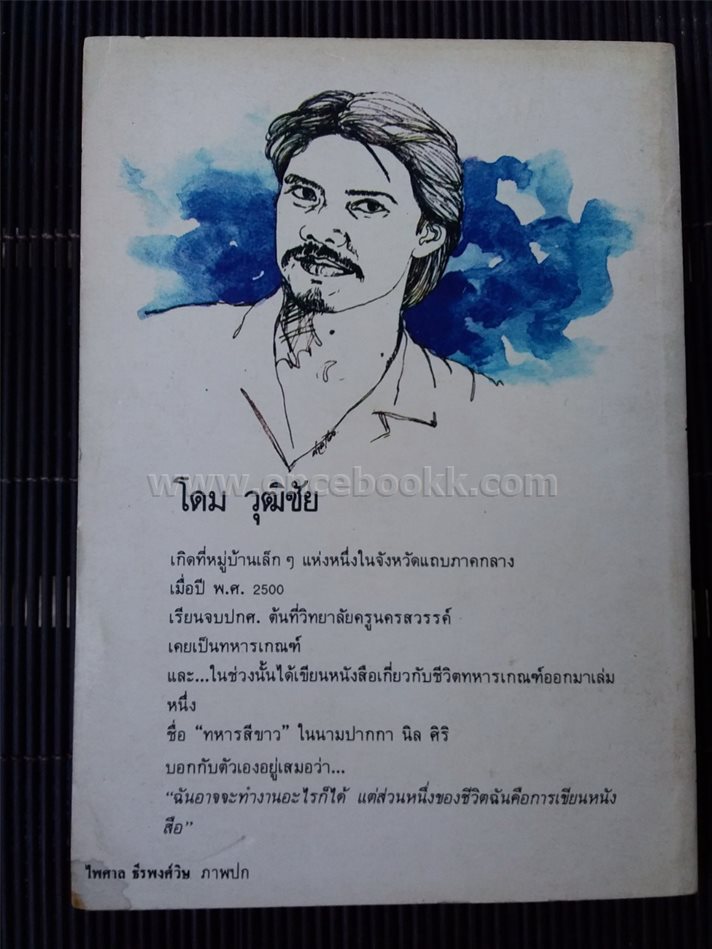 www.encebookk.com
โดม วุฒิชัย
เกิดที่หมู่บ้านเล็ก ๆ แห่งหนึ่งในจังหวัดแถบภาคกลาง
เมื่อปี พ.ศ. 2500
เรียนจบปกศ. ต้นที่วิทยาลัยครูนครสวรรค์
เคยเป็นทหารเกณฑ์
และ...ในช่วงนั้นได้เขียนหนังสือเกี่ยวกับชีวิตทหารเกณฑ์ออกมาเล่ม
หนึ่ง
ชื่อ “ทหารสีขาว” ในนามปากกา นิล ศิริ
บอกกับตัวเองอยู่เสมอว่า...
“ฉันอาจจะทำงานอะไรก็ได้ แต่ส่วนหนึ่งของชีวิตฉันคือการเขียนหนัง
สือ”
ไพศาล ธีรพงศ์วิษ ภาพปก